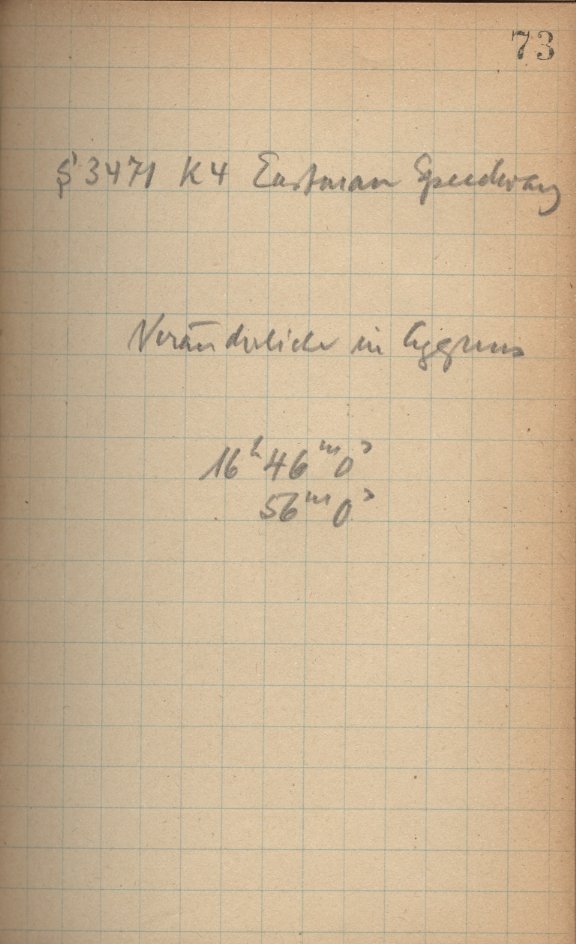 73
S 3471 K4 Eastman Speedway
Veränderliche in Cygnus
16ʰ 46ᵐ 0ˢ
56ᵐ 0ˢ